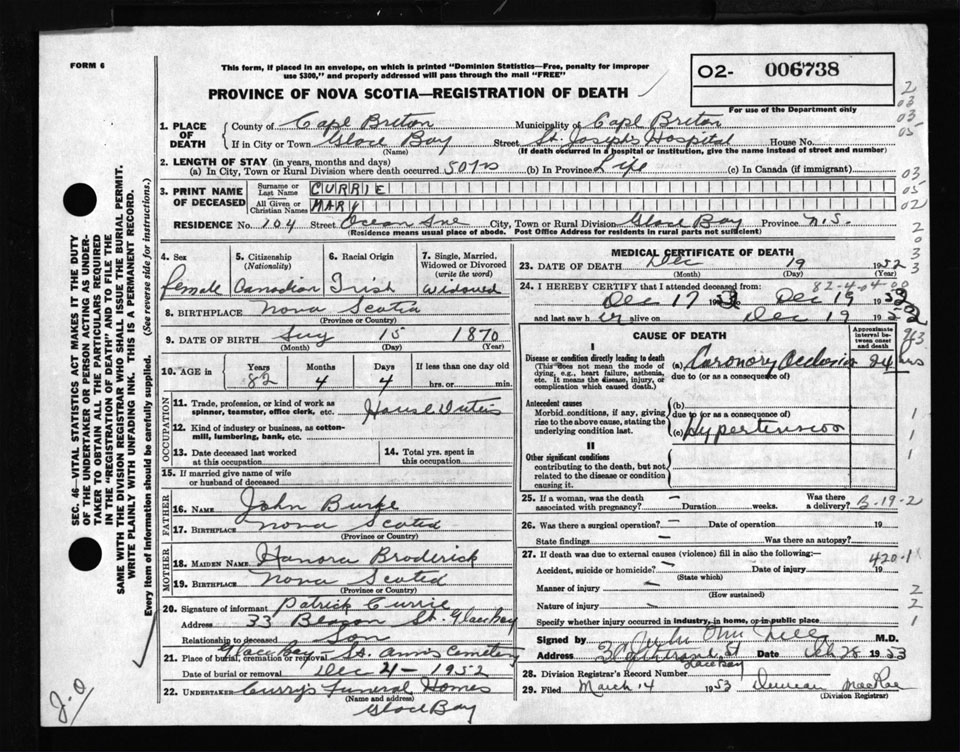 FORM 6
This form, if placed in an envelope, on which is printed "Dominion Statistics—Free, penalty for improper
use $300," and properly addressed will pass through the mail "FREE"
PROVINCE OF NOVA SCOTIA—REGISTRATION OF DEATH
O2- 006738
For use of the Department only
2
03
03
05
1. PLACE OF DEATH
County of Cape Breton Municipality of Cape Breton
If in City or Town Glace Bay Street St. Joseph's Hospital House No.
(Name) (If death occurred in a hospital or institution, give the name instead of street and number)
2. LENGTH OF STAY (in years, months and days)
(a) In City, Town or Rural Division where death occurred 50 yrs (b) In Province Life (c) In Canada (if immigrant)
3. PRINT NAME OF DECEASED
Surname or Last Name CURRIE
All Given or Christian Names MARY
03
05
02
RESIDENCE No. 104 Street Ocean Ave City, Town or Rural Division Glace Bay Province N.S.
(Residence means usual place of abode. Post Office Address for residents in rural parts not sufficient)
2
0
3
3
SEC. 46—VITAL STATISTICS ACT MAKES IT THE DUTY
OF THE UNDERTAKER OR PERSON ACTING AS UNDER-
TAKER TO OBTAIN ALL THE PARTICULARS REQUIRED
IN THE "REGISTRATION OF DEATH" AND TO FILE THE
SAME WITH THE DIVISION REGISTRAR WHO SHALL ISSUE THE BURIAL PERMIT.
WRITE PLAINLY WITH UNFADING INK. THIS IS A PERMANENT RECORD.
Every item of information should be carefully supplied. (See reverse side for instructions.)
4. Sex
Female
5. Citizenship
(Nationality)
Canadian
6. Racial Origin
Irish
7. Single, Married,
Widowed or Divorced
(write the word)
Widowed
8. BIRTHPLACE Nova Scotia
(Province or Country)
9. DATE OF BIRTH Aug 15 1870
(Month) (Day) (Year)
10. AGE in
Years Months Days If less than one day
82 4 4 hrs. or min.
OCCUPATION
11. Trade, profession, or kind of work as
spinner, teamster, office clerk, etc. House Duties
12. Kind of industry or business, as cotton-
mill, lumbering, bank, etc.
13. Date deceased last worked
at this occupation
14. Total yrs. spent in
this occupation
15. If married give name of wife
or husband of deceased
FATHER
16. Name John Burke
17. BIRTHPLACE Nova Scotia
(Province or Country)
MOTHER
18. MAIDEN NAME Hanora Broderick
19. BIRTHPLACE Nova Scotia
(Province or Country)
20. Signature of informant Patrick Currie
Address 33 Beacon St. Glace Bay
Relationship to deceased Son
21. Place of burial, cremation or removal Glace Bay - St. Anns Cemetery
Date of burial or removal Dec 21 - 1952
22. UNDERTAKER Curry's Funeral Homes
(Name and address)
Glace Bay
MEDICAL CERTIFICATE OF DEATH
23. DATE OF DEATH Dec 19 1952
(Month) (Day) (Year)
24. I HEREBY CERTIFY that I attended deceased from:
82-4-04-00
Dec 17 Dec 19
and last saw h er alive on Dec 19
CAUSE OF DEATH
Approximate interval between onset and death
I
Disease or condition directly leading to death
(This does not mean the mode of
dying, e.g., heart failure, asthenia,
etc. It means the disease, injury, or
complication which caused death.)
(a) Coronary Occlusion 24 hrs
due to (or as a consequence of)
Antecedent causes
Morbid conditions, if any, giving
rise to the above cause, stating the
underlying condition last.
(b)
due to (or as a consequence of)
(c) Hypertension
1
1
1
II
Other significant conditions
contributing to the death, but not
related to the disease or condition
causing it.
25. If a woman, was the death
associated with pregnancy? — Duration weeks. Was there
a delivery?
26. Was there a surgical operation? — Date of operation 19
State findings Was there an autopsy?
27. If death was due to external causes (violence) fill in also the following:—
420.1
Accident, suicide or homicide? — Date of injury 19
(State which)
Manner of injury —
(How sustained)
Nature of injury —
2
2
1
Specify whether injury occurred in industry, in home, or in public place
Signed by M.D.
Address Date Feb 28 1953
Glace Bay
28. Division Registrar's Record Number
29. Filed March 14 1953 Duncan MacRae
(Division Registrar)
J.O